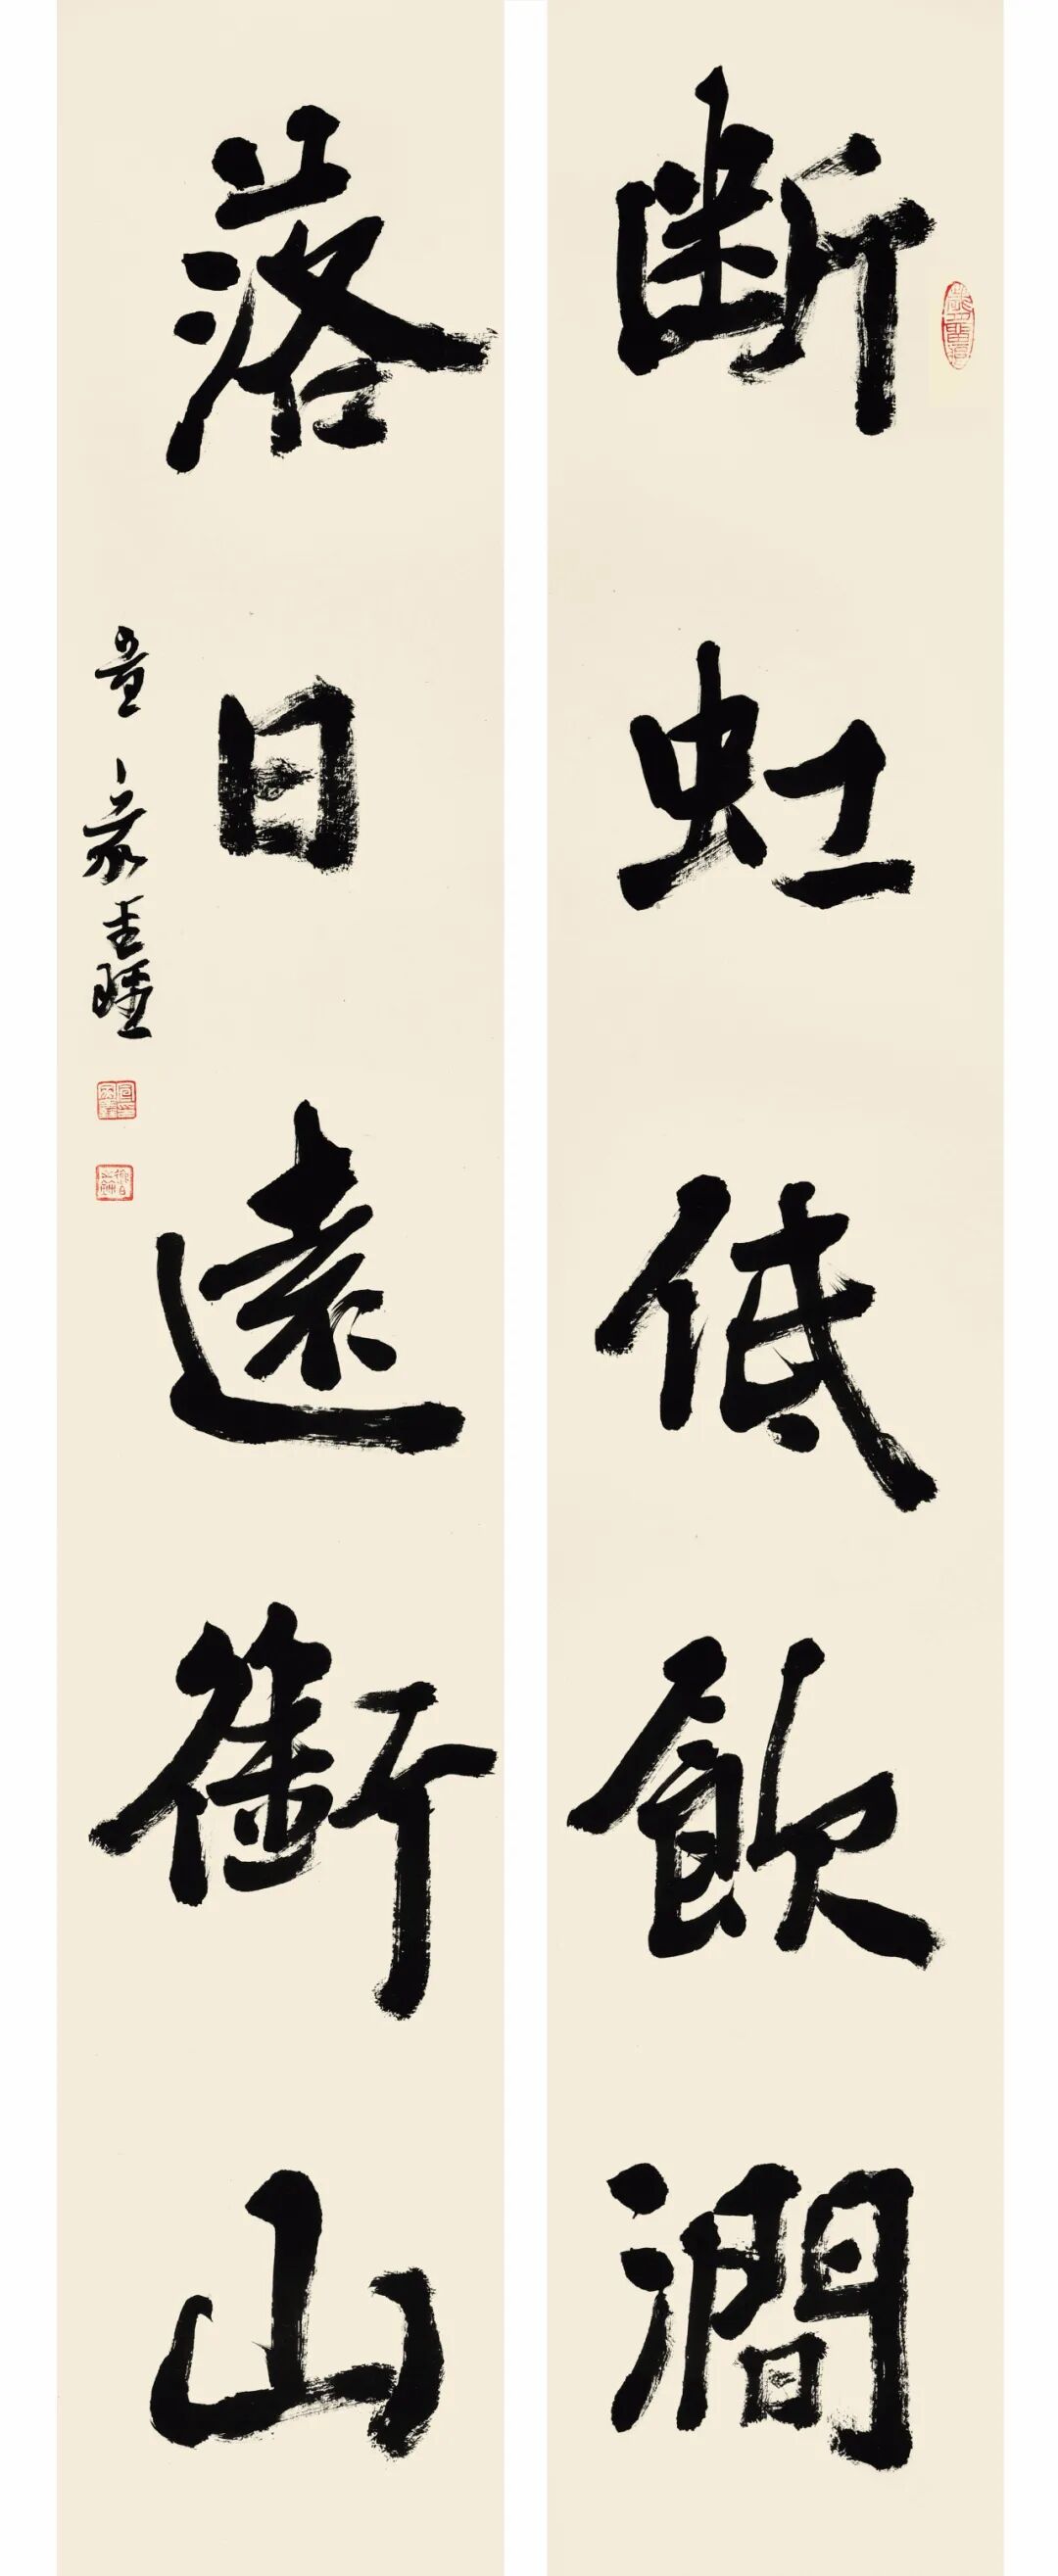 斷虹低飲澗
落日遠銜山